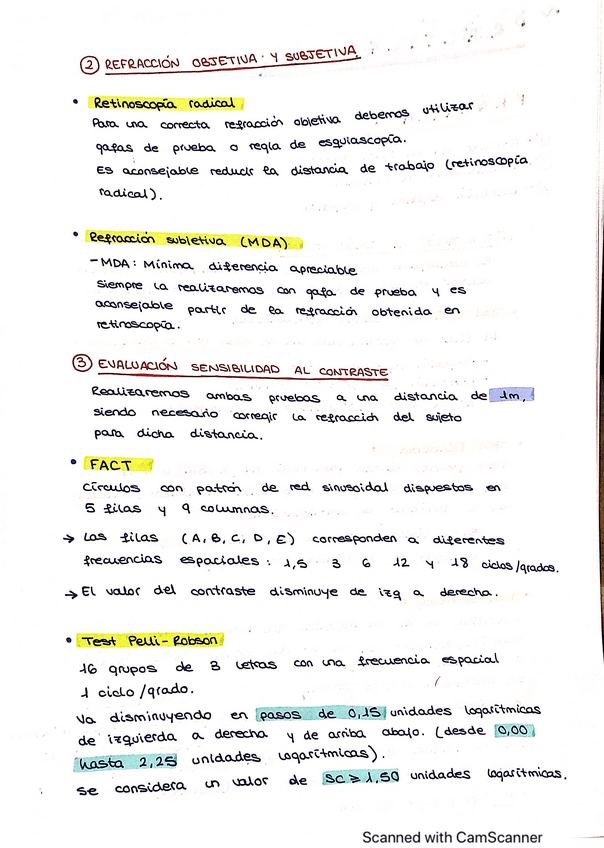 ② REFRACCIÓN OBJETIVA Y SUBJETIVA
• Retinoscopía radical
Para una correcta refracción objetiva debemos utilizar
gafas de prueba o regla de esquiascopía.
Es aconsejable reducir la distancia de trabajo (retinoscopía
radical).
• Refracción subjetiva (MDA)
- MDA: Mínima diferencia apreciable
Siempre la realizaremos con gafa de prueba y es
aconsejable partir de la refracción obtenida en
retinoscopía.
③ EVALUACIÓN SENSIBILIDAD AL CONTRASTE
Realizaremos ambas pruebas a una distancia de 1m,
siendo necesario corregir la refracción del sujeto
para dicha distancia.
• FACT
Círculos con patrón de red sinusoidal dispuestos en
5 filas y 9 columnas.
→ Las filas (A, B, C, D, E) corresponden a diferentes
frecuencias espaciales: 1,5 3 6 12 y 18 ciclos/grados.
→ El valor del contraste disminuye de izq a derecha.
• Test Pelli-Robson
16 grupos de 3 letras con una frecuencia espacial
1 ciclo/grado.
Va disminuyendo en pasos de 0,15 unidades logarítmicas
de izquierda a derecha y de arriba abajo. (desde 0,00
hasta 2,25 unidades logarítmicas).
Se considera un valor de SC ≥ 1,50 unidades logarítmicas.
Scanned with CamScanner